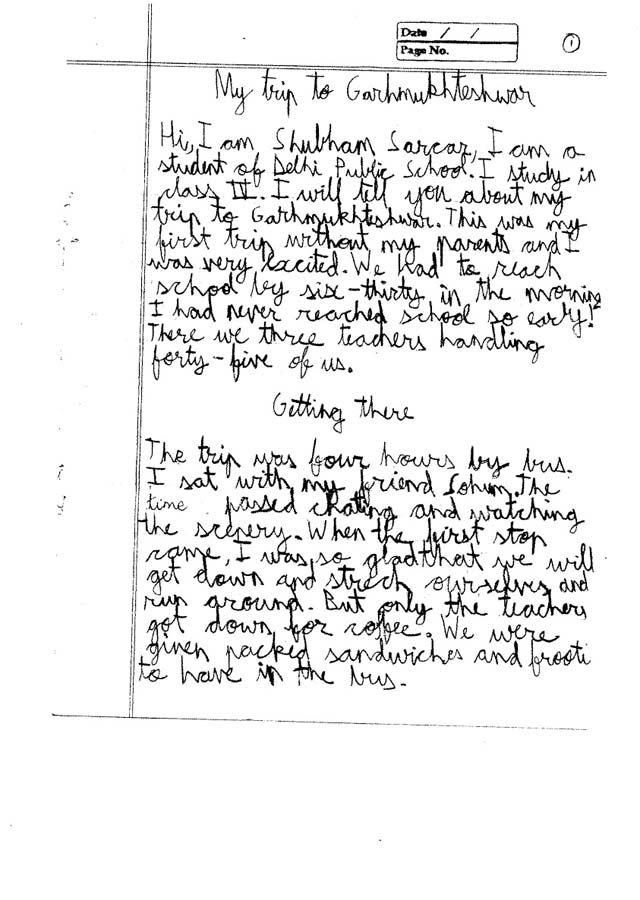 Date / /
Page No.
1
My trip to Garhmukhteshwar
Hi, I am Shubham Sarcar, I am a
student of Delhi Public School. I study in
class IV. I will tell you about my
trip to Garhmukhteshwar. This was my
first trip without my parents and I
was very excited. We had to reach
school by six-thirty in the morning
I had never reached school so early!
There we three teachers handling
forty-five of us.
Getting there
The trip was four hours by bus.
I sat with my friend Sohum. The
time passed chating and watching
the scenery. When the first stop
came, I was so glad that we will
get down and strech ourselves and
run around. But only the teachers
got down for coffee. We were
given packed sandwiches and frooti
to have in the bus.